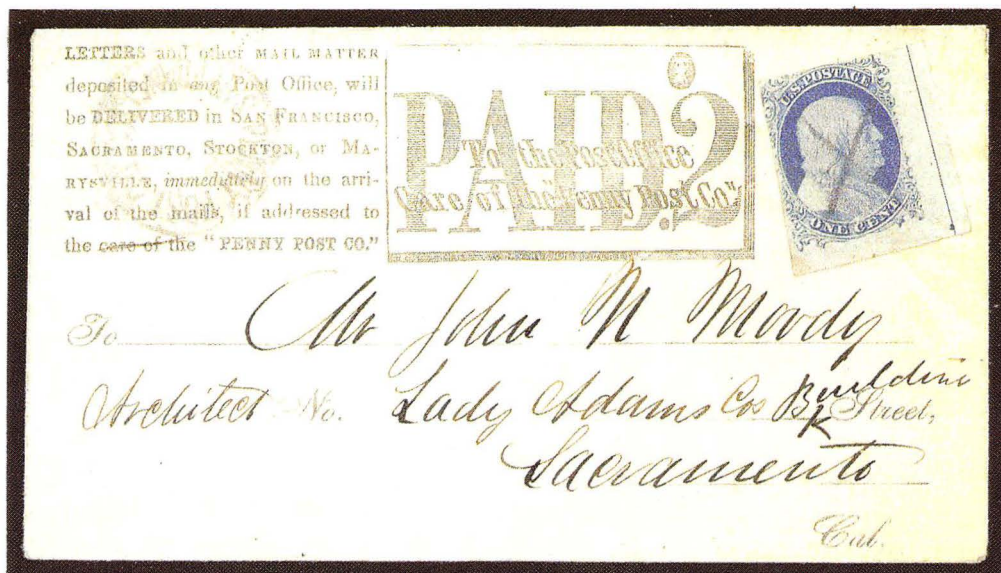 LETTERS and other MAIL MATTER
deposited in any Post Office, will
be DELIVERED in SAN FRANCISCO,
SACRAMENTO, STOCKTON, or MA-
RYSVILLE, immediately on the arri-
val of the mails, if addressed to
the care of the "PENNY POST CO."
PAID.2
To the Post Office
Care of the "Penny Post Co."
U.S. POSTAGE
ONE CENT
To Mr John N Moody
Architect No. Lady Adams Cos Building Street,
K
Sacramento
Cal.